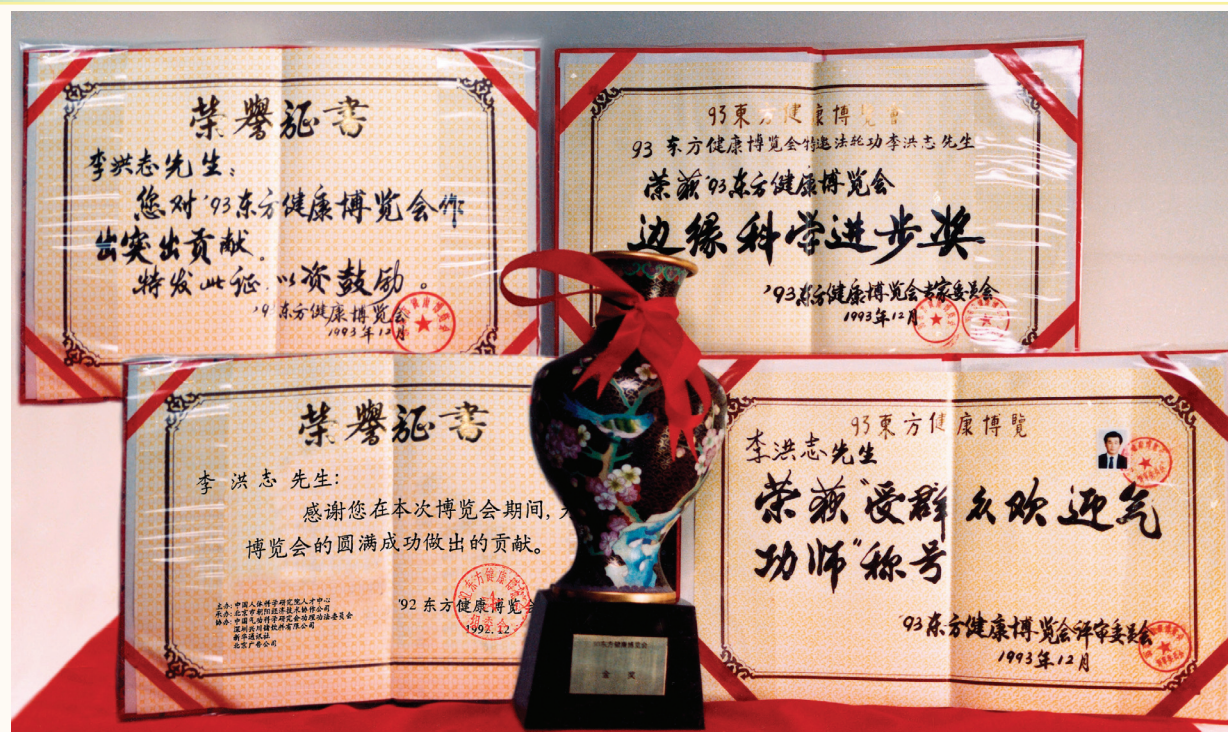 荣誉证书
李洪志先生：
您对'93东方健康博览会作
出突出贡献。
特发此证以资鼓励。
'93东方健康博览会
1993年12月
93東方健康博覽會
93东方健康博览会特邀法轮功李洪志先生
荣获'93东方健康博览会
边缘科学进步奖
'93东方健康博览会专家委员会
1993年12月
荣誉证书
李洪志先生:
感谢您在本次博览会期间,
博览会的圆满成功做出的贡献。
主办:中国人体科学研究院人才中心
承办:北京市朝阳经济技术协作公司
协办:中国气功科学研究会功理功法委员会
新华通讯社
北京广告公司
'92 东方健康博览会
1992.12
93東方健康博覽
李洪志先生
荣获"受群众欢迎气
功师"称号
'93东方健康博览会评审委员会
1993年12月
东方健康博览会
金奖